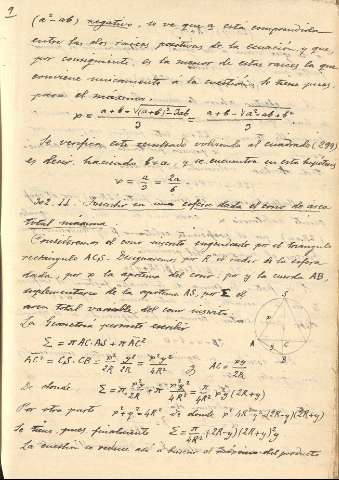 9
(a² - ab) negativo, se ve que a está comprendida
entre las dos raíces positivas de la ecuación y que,
por consiguiente, es la menor de estas raíces la que
conviene únicamente à la cuestión. Se tiene pues
para el máximo.
x = (a+b - √((a+b)² - 3ab))/3 = (a+b - √(a² - ab + b²))/3
Se verifica este resultado volviendo al cuadrado (299)
es decir, haciendo b=a, y se encuentra en esta hipótesis
x = a/3 = 2a/6
302. II. Inscribir en una esfera dada el cono de area
total máxima
Consideremos el cono inscrito engendrado por el triangulo
rectangulo ACS. Designemos por R el radio de la esfera
dada, por x la apotema del cono, por y la cuerda AB,
suplementaria de la apotema AS, por Σ el
area total variable del cono inscrito.
La Geometría permite escribir
Σ = π AC·AS + π AC²
AC² = CS·CB = x²/2R · y²/2R = x²y²/4R² ; AC = xy/2R
De donde Σ = π x²y/2R + π x²y²/4R² = π/4R² x²y(2R+y)
Por otra parte x²+y²=4R² de donde x²=4R²-y²=(2R-y)(2R+y)
Se tiene, pues finalmente Σ = π/4R² (2R-y)(2R+y)²y
La cuestión se reduce así a buscar el máximo del producto
S
x
A
C
y
B